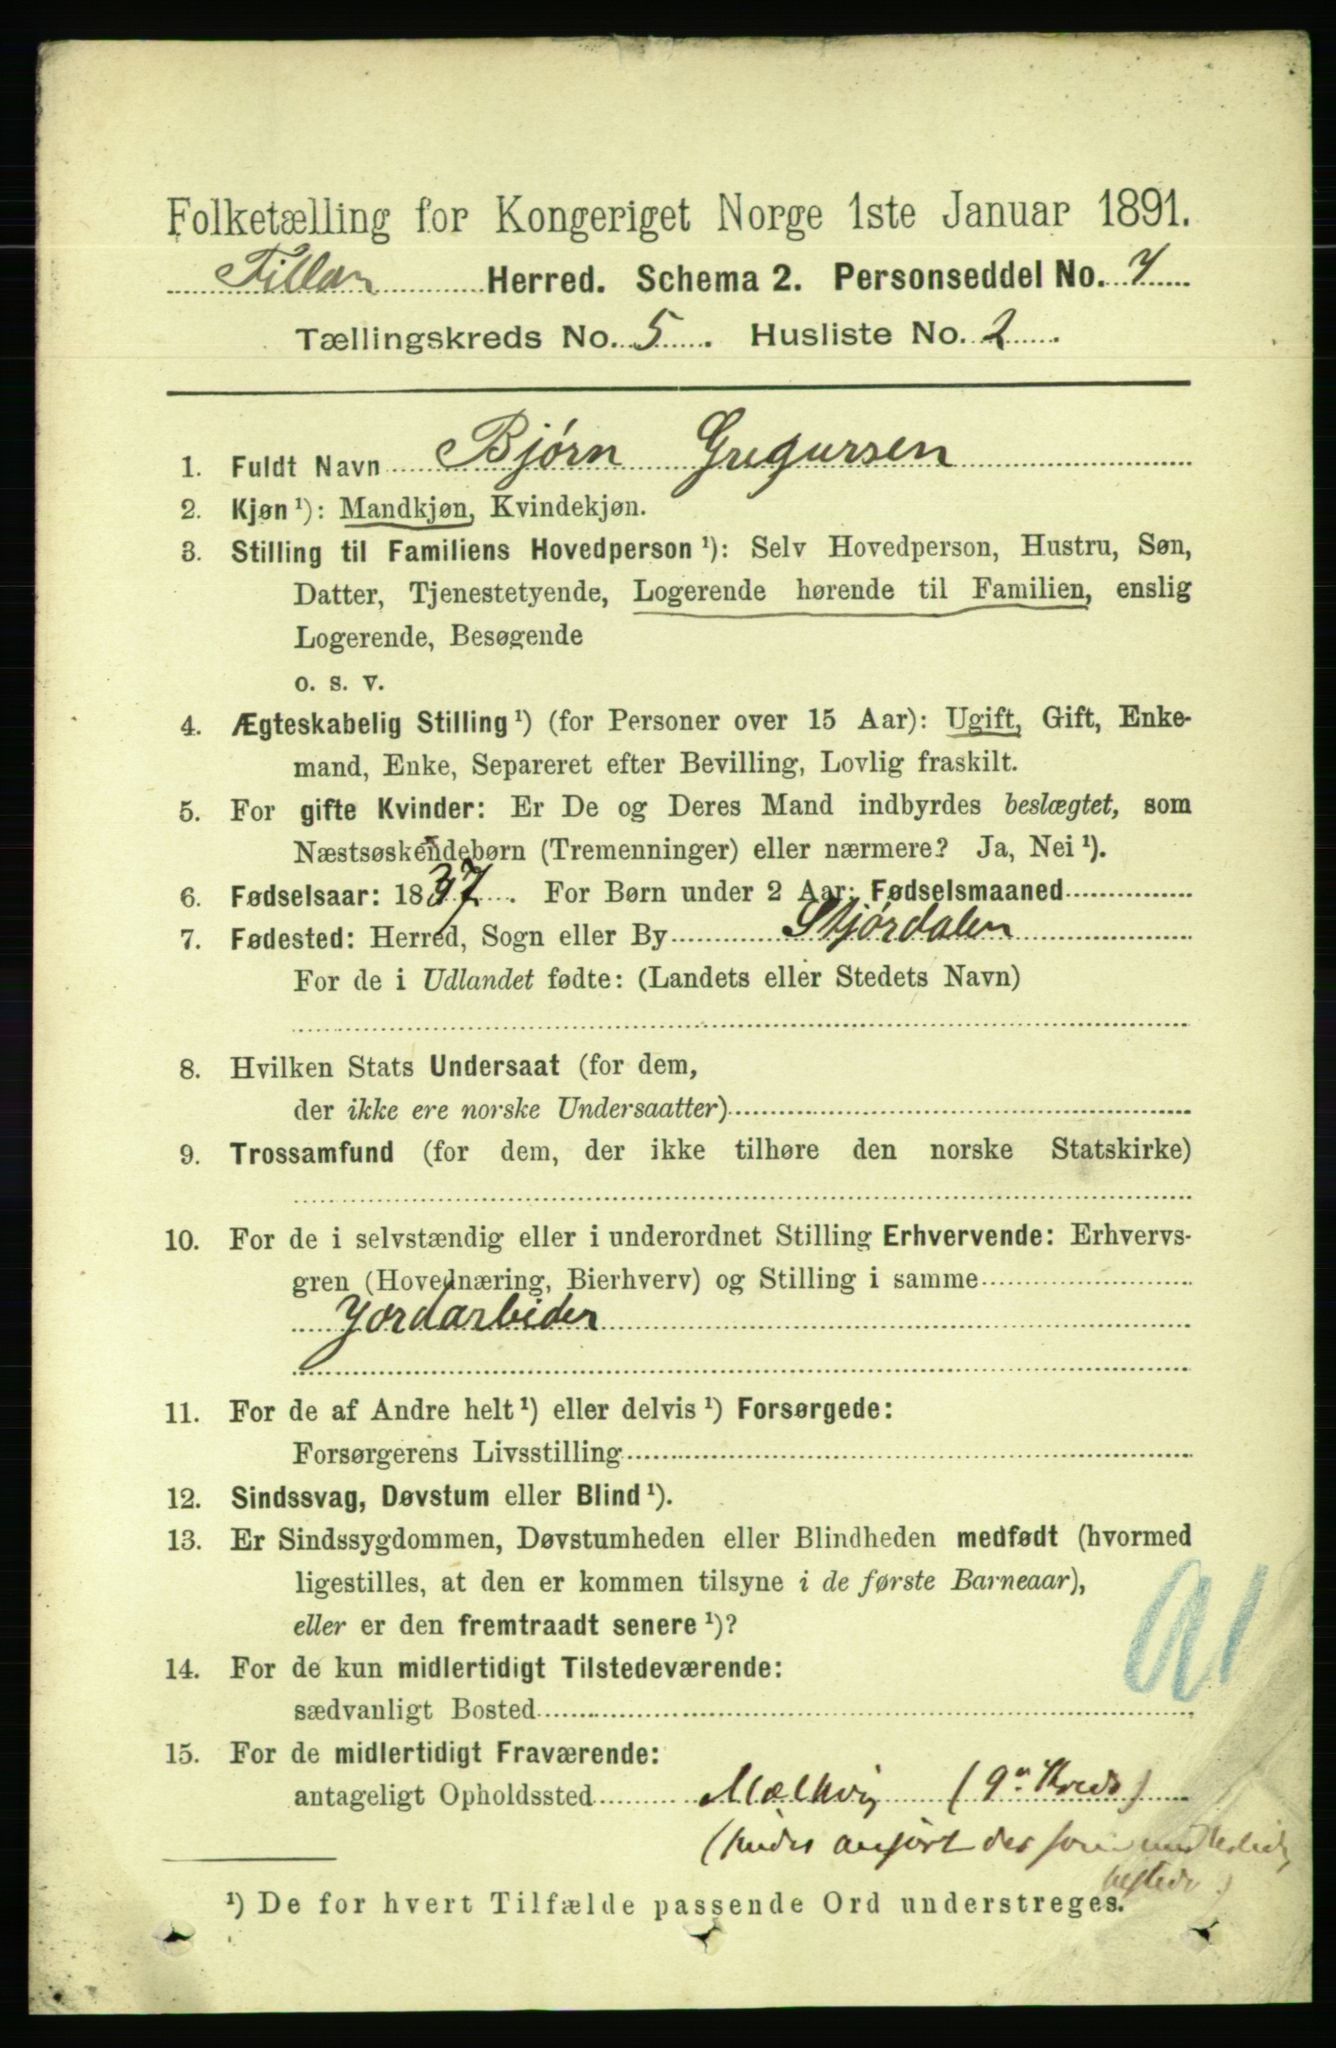 Folketælling for Kongeriget Norge 1ste Januar 1891.
Fillan Herred. Schema 2. Personseddel No. 7
Tællingskreds No. 5. Husliste No. 2.
1. Fuldt Navn Bjørn Gregursen
2. Kjøn ¹): Mandkjøn, Kvindekjøn.
3. Stilling til Familiens Hovedperson ¹): Selv Hovedperson, Hustru, Søn,
Datter, Tjenestetyende, Logerende hørende til Familien, enslig
Logerende, Besøgende
o. s. v.
4. Ægteskabelig Stilling ¹) (for Personer over 15 Aar): Ugift, Gift, Enke-
mand, Enke, Separeret efter Bevilling, Lovlig fraskilt.
5. For gifte Kvinder: Er De og Deres Mand indbyrdes beslægtet, som
Næstsøskendebørn (Tremenninger) eller nærmere? Ja, Nei ¹).
6. Fødselsaar: 1837. For Børn under 2 Aar: Fødselsmaaned
7. Fødested: Herred, Sogn eller By Stjørdalen
For de i Udlandet fødte: (Landets eller Stedets Navn)
8. Hvilken Stats Undersaat (for dem,
der ikke ere norske Undersaatter)
9. Trossamfund (for dem, der ikke tilhøre den norske Statskirke)
10. For de i selvstændig eller i underordnet Stilling Erhvervende: Erhvervs-
gren (Hovednæring, Bierhverv) og Stilling i samme
Jordarbider
11. For de af Andre helt ¹) eller delvis ¹) Forsørgede:
Forsørgerens Livsstilling
12. Sindssvag, Døvstum eller Blind ¹).
13. Er Sindssygdommen, Døvstumheden eller Blindheden medfødt (hvormed
ligestilles, at den er kommen tilsyne i de første Barneaar),
eller er den fremtraadt senere ¹)?
14. For de kun midlertidigt Tilstedeværende:
sædvanligt Bosted
15. For de midlertidigt Fraværende:
antageligt Opholdssted Mælhvig (9de Kreds)
(findes anført der som
¹) De for hvert Tilfælde passende Ord understreges.